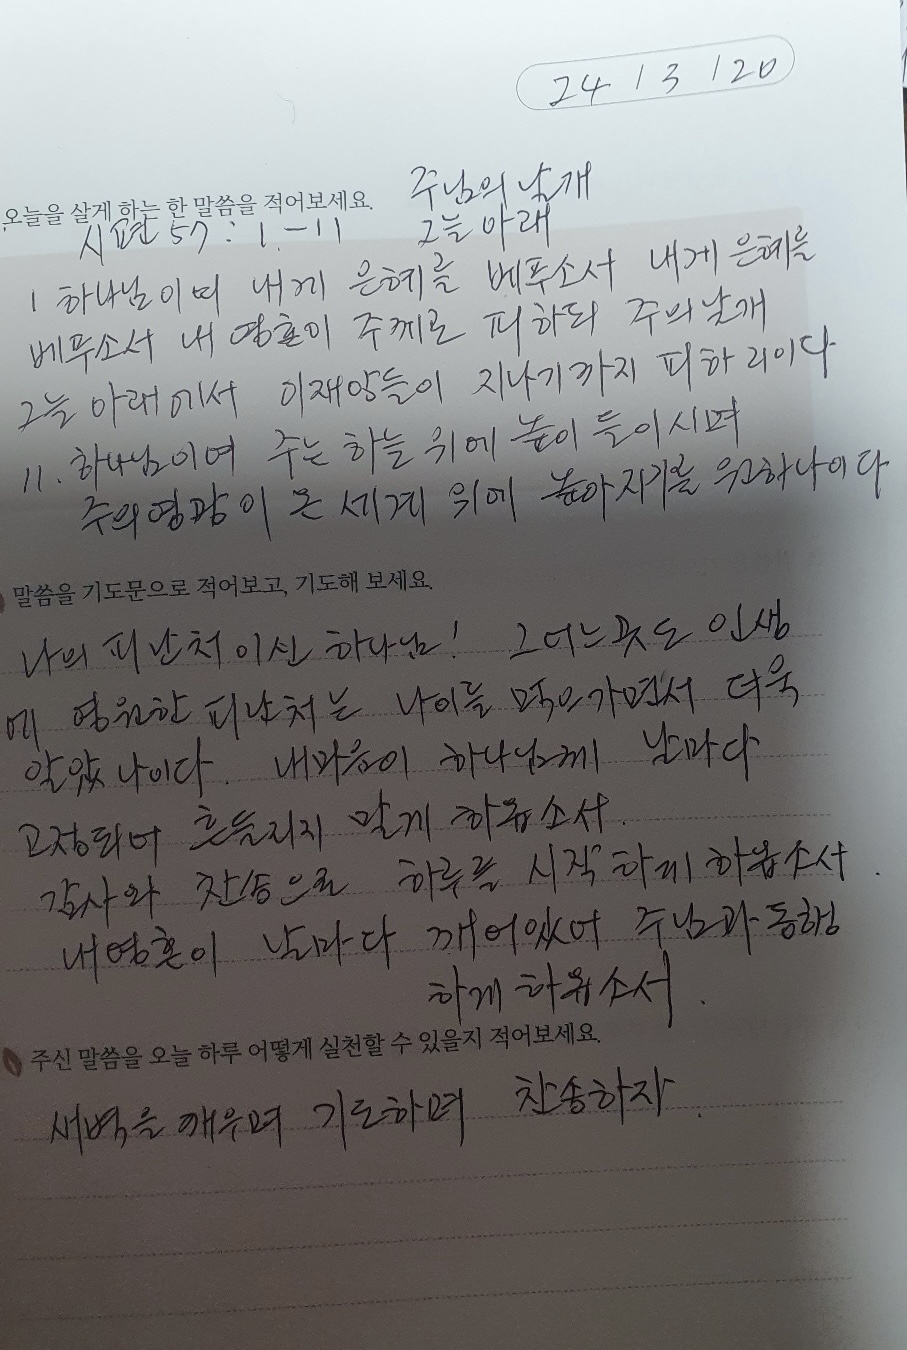 24 / 3 / 20
오늘을 살게 하는 한 말씀을 적어보세요. 주님의 날개
시편 57 : 1. - 11 그늘 아래
1 하나님이여 내게 은혜를 베푸소서 내게 은혜를
베푸소서 내 영혼이 주께로 피하되 주의 날개
그늘 아래에서 이재앙들이 지나기까지 피하리이다
11. 하나님이여 주는 하늘 위에 높이 들이시며
주의 영광이 온 세계 위에 높아지기를 원하나이다
말씀을 기도문으로 적어보고, 기도해 보세요.
나의 피난처이신 하나님! 그어느곳도 인생
에 영원한 피난처는 나이들 먹으가면서 더욱
알았나이다. 내마음이 하나님께 날마다
고정되어 흔들리지 말게 하옵소서.
감사와 찬송으로 하루를 시작하게 하옵소서.
내영혼이 날마다 깨어있어 주님과 동행
하게 하옵소서.
주신 말씀을 오늘 하루 어떻게 실천할 수 있을지 적어보세요.
새벽을 깨우며 기도하며 찬송하자.